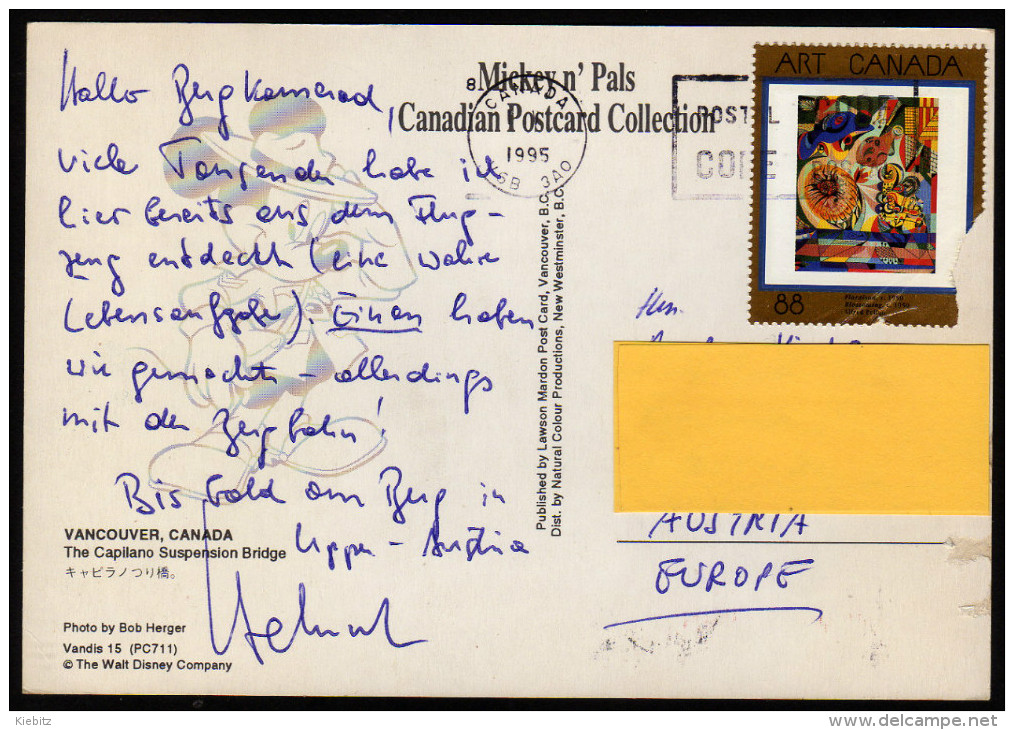 Hallo Bergkamerad,
viele Tausender habe ich
hier bereits aus dem Flug-
zeug entdeckt (eine wahre
Lebensaufgabe). Einen haben
wir gemacht – allerdings
mit der Bergbahn!
Bis bald am Berg in
Upper-Austria
Helmut
Mickey n' Pals
Canadian Postcard Collection
8
CANADA
1995
3A0
POSTAL
CODE
ART CANADA
88
Floraison, v. 1950
Alfred Pellan
Published by Lawson Mardon Post Card, Vancouver, B.C.
Dist. by Natural Colour Productions, New Westminster, B.C.
Herrn
AUSTRIA
EUROPE
VANCOUVER, CANADA
The Capilano Suspension Bridge
キャピラノつり橋。
Photo by Bob Herger
Vandis 15 (PC711)
© The Walt Disney Company
Kiebitz
www.delcampe.net